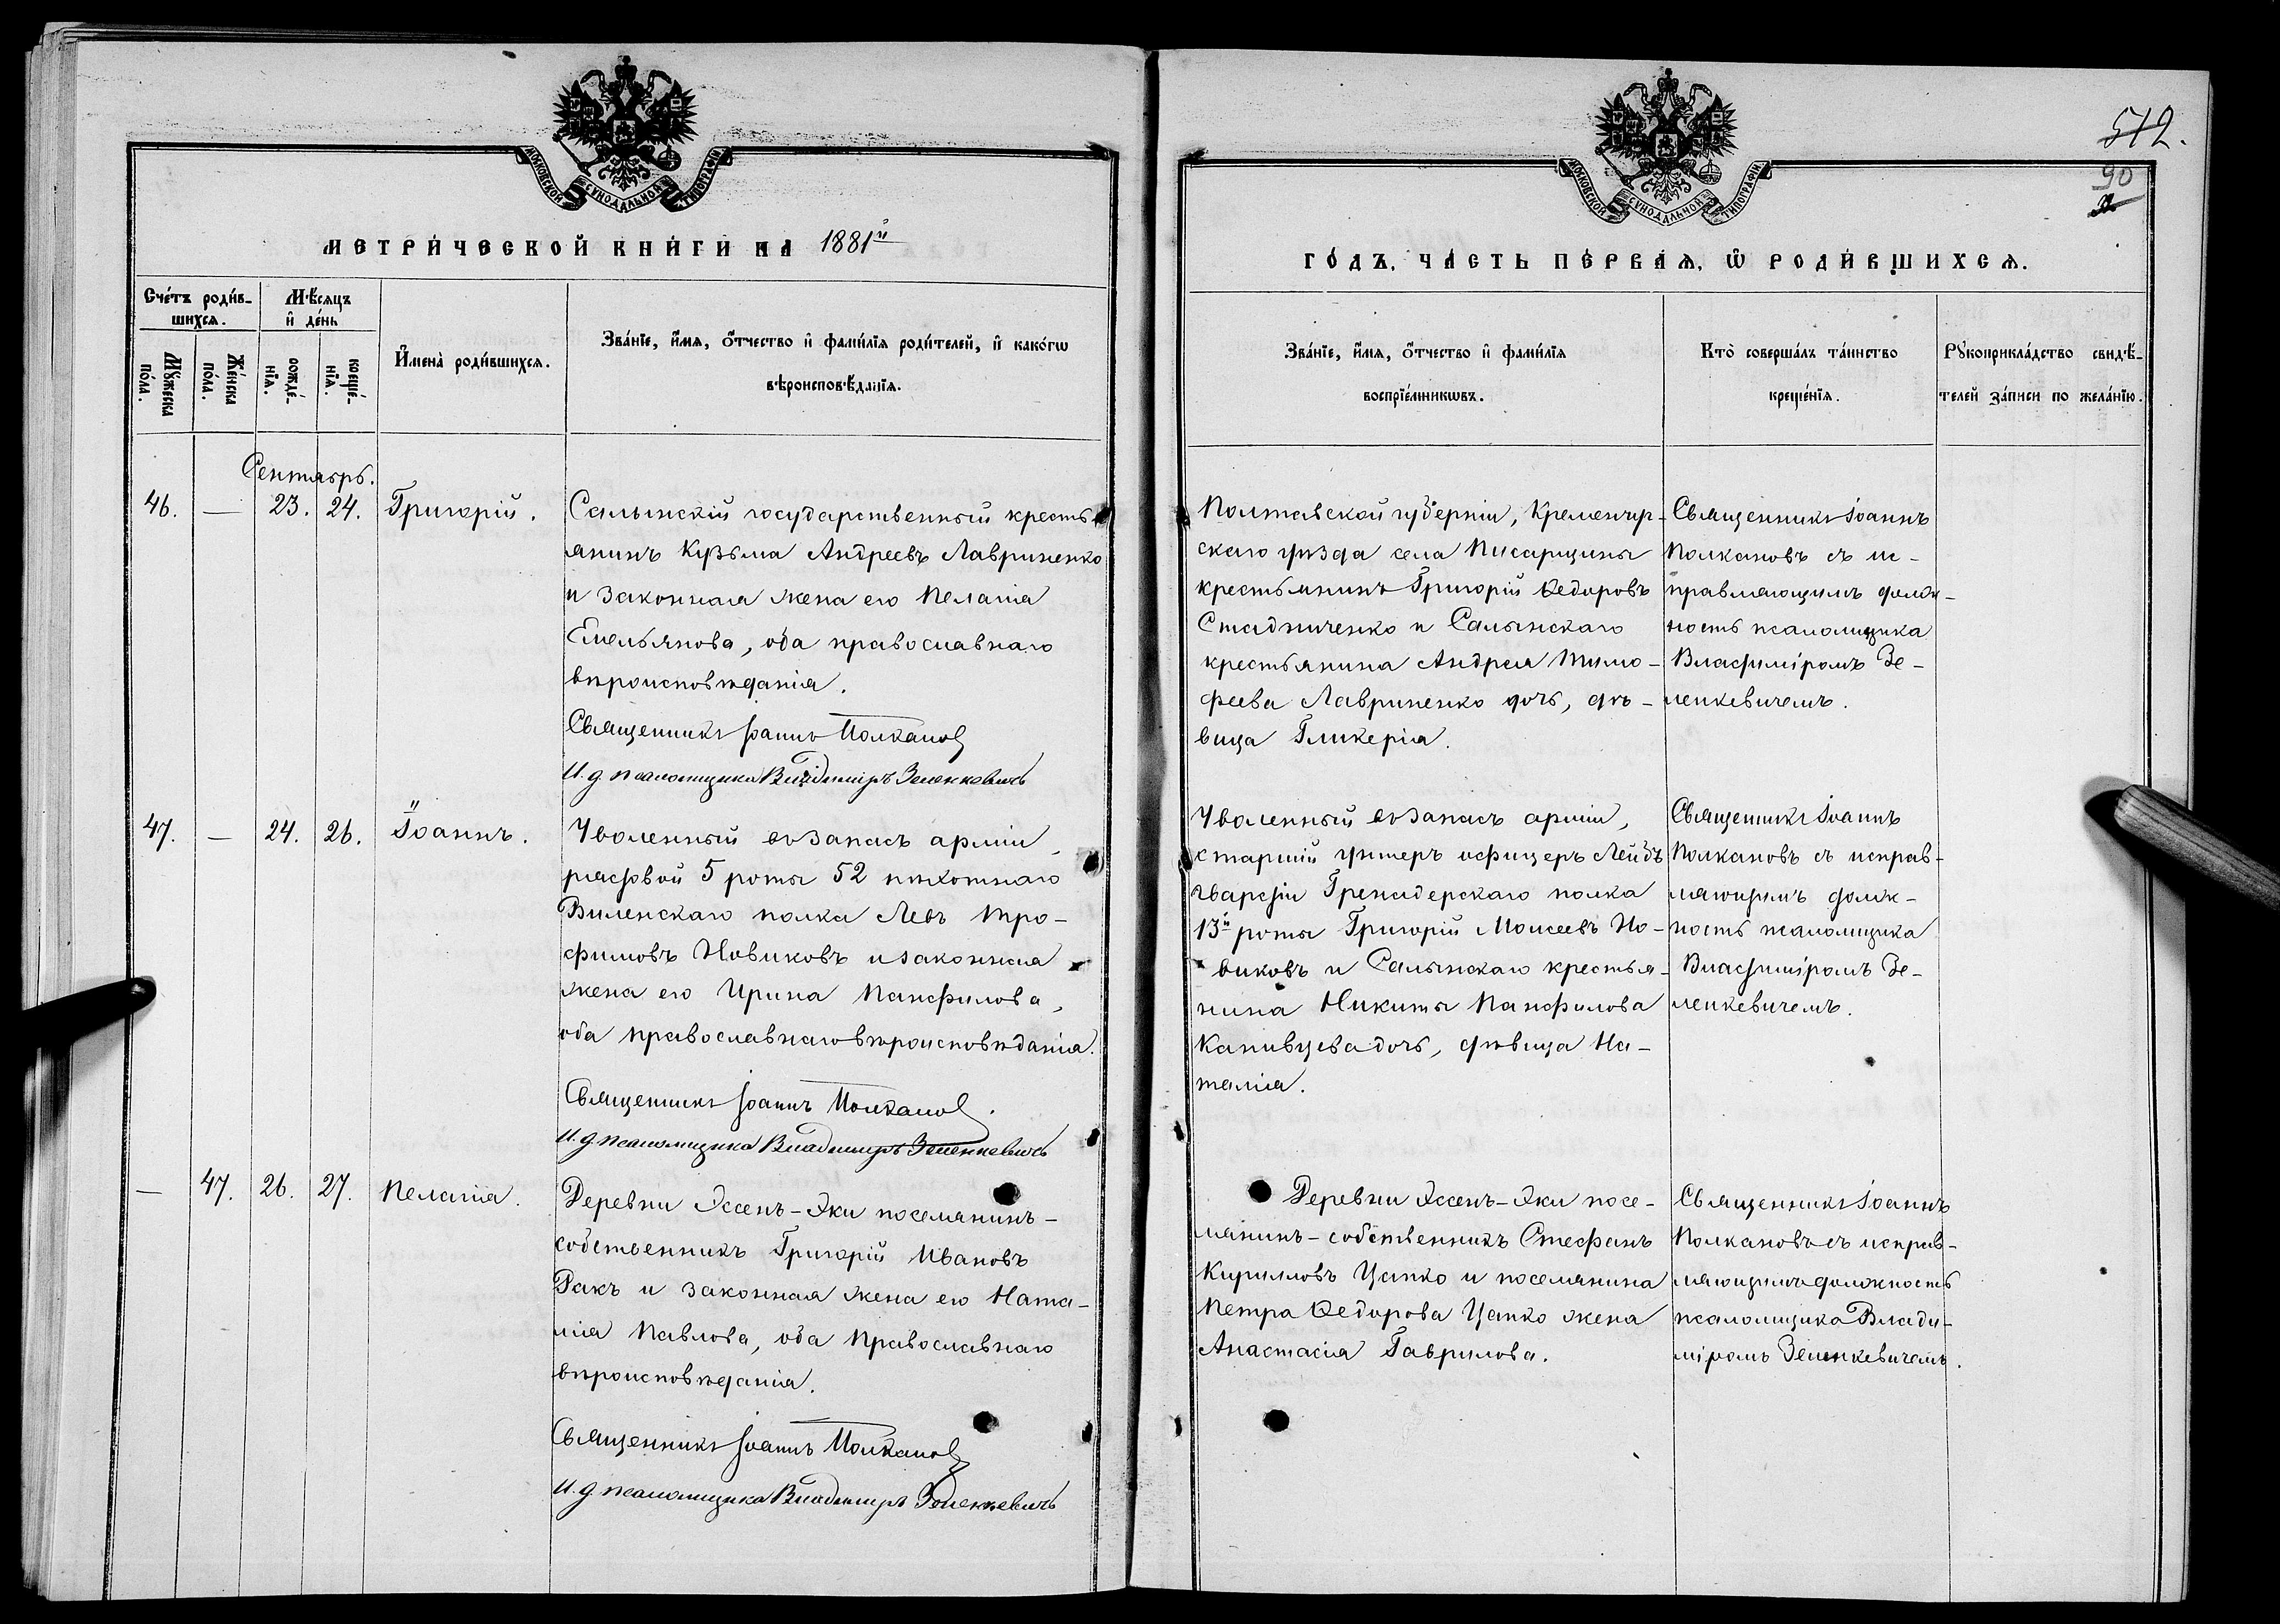 МОСКОВСКОЙ СѴНОДАЛЬНОЙ ТИПОГРАФІИ
МЕТРИ́ЧЕСКОЙ КНИ́ГИ НА 1881й
Сче́тъ роди́в-
шихся.
Мѣ́сяцъ
и҆ де́нь
Мꙋ́жеска
по́ла.
Же́нска
по́ла.
рожде́-
нїя.
креще́-
нїя.
И҆мена̀ роди́вшихся.
Зва́нїе, и҆́мя, ѻ҆́тчество и҆ фами́лїя роди́телей, и҆ како́гѡ
вѣроисповѣ́данїя.
Сентябрь.
46. — 23. 24. Григорій.
Салынскій государственный кресть-
янинъ Кузьма Андреевъ Лавриненко
и законная жена его Пелагія
Емельянова, оба православнаго
вѣроисповѣданія.
Священникъ Іоаннъ Полкановъ
И. д. псаломщика Владиміръ Зеленкевичъ
47. — 24. 26. Іоаннъ.
Уволенный въ запасъ арміи,
рядовой 5 роты 52 пѣхотнаго
Виленскаго полка Левъ Тро-
фимовъ Новиковъ и законная
жена его Ирина Панфилова,
оба православнаго вѣроисповѣданія.
Священникъ Іоаннъ Полкановъ.
И. д. псаломщика Владиміръ Зеленкевичъ
— 47. 26. 27. Пелагія.
Деревни Эссенъ-Эки поселянинъ-
собственникъ Григорій Ивановъ
Ракъ и законная жена его Ната-
лія Павлова, оба православнаго
вѣроисповѣданія.
Священникъ Іоаннъ Полкановъ
И. д. псаломщика Владиміръ Зеленкевичъ
512.
90
МОСКОВСКОЙ СѴНОДАЛЬНОЙ ТИПОГРАФІИ
ГО́ДЪ, ЧА́СТЬ ПЕ́РВАЯ, Ѡ҆ РОДИ́ВШИХСЯ.
Зва́нїе, и҆́мя, ѻ҆́тчество и҆ фами́лїя
воспрїе́мникѡвъ.
Кто̀ соверша́лъ та́инство
креще́нїя.
Рꙋкоприкла́дство свидѣ́-
телей за́писи по жела́нїю.
Полтавской губерніи, Кременчуг-
скаго уѣзда села Писарщины
крестьянинъ Григорій Ѳедоровъ
Стадниченко и Салынскаго
крестьянина Андрея Тимо-
феева Лавриненко дочь, дѣ-
вица Гликерія.
Священникъ Іоаннъ
Полкановъ съ ис-
правляющимъ долж-
ность псаломщика
Владиміромъ Зе-
ленкевичемъ.
Уволенный въ запасъ арміи,
старшій унтеръ офицеръ Лейбъ
гвардіи Гренадерскаго полка
13й роты Григорій Моисеевъ Но-
виковъ и Салынскаго крестья-
нина Никиты Панфилова
Капивцева дочь, дѣвица На-
талія.
Священникъ Іоаннъ
Полкановъ съ исправ-
ляющимъ долж-
ность псаломщика
Владиміромъ Зе-
ленкевичемъ.
Деревни Эссенъ-Эки посе-
лянинъ-собственникъ Стефанъ
Кирилловъ Цапко и поселянина
Петра Ѳедорова Цапко жена
Анастасія Гаврилова.
Священникъ Іоаннъ
Полкановъ съ исправ-
ляющимъ должность
псаломщика Влади-
міромъ Зеленкевичемъ.